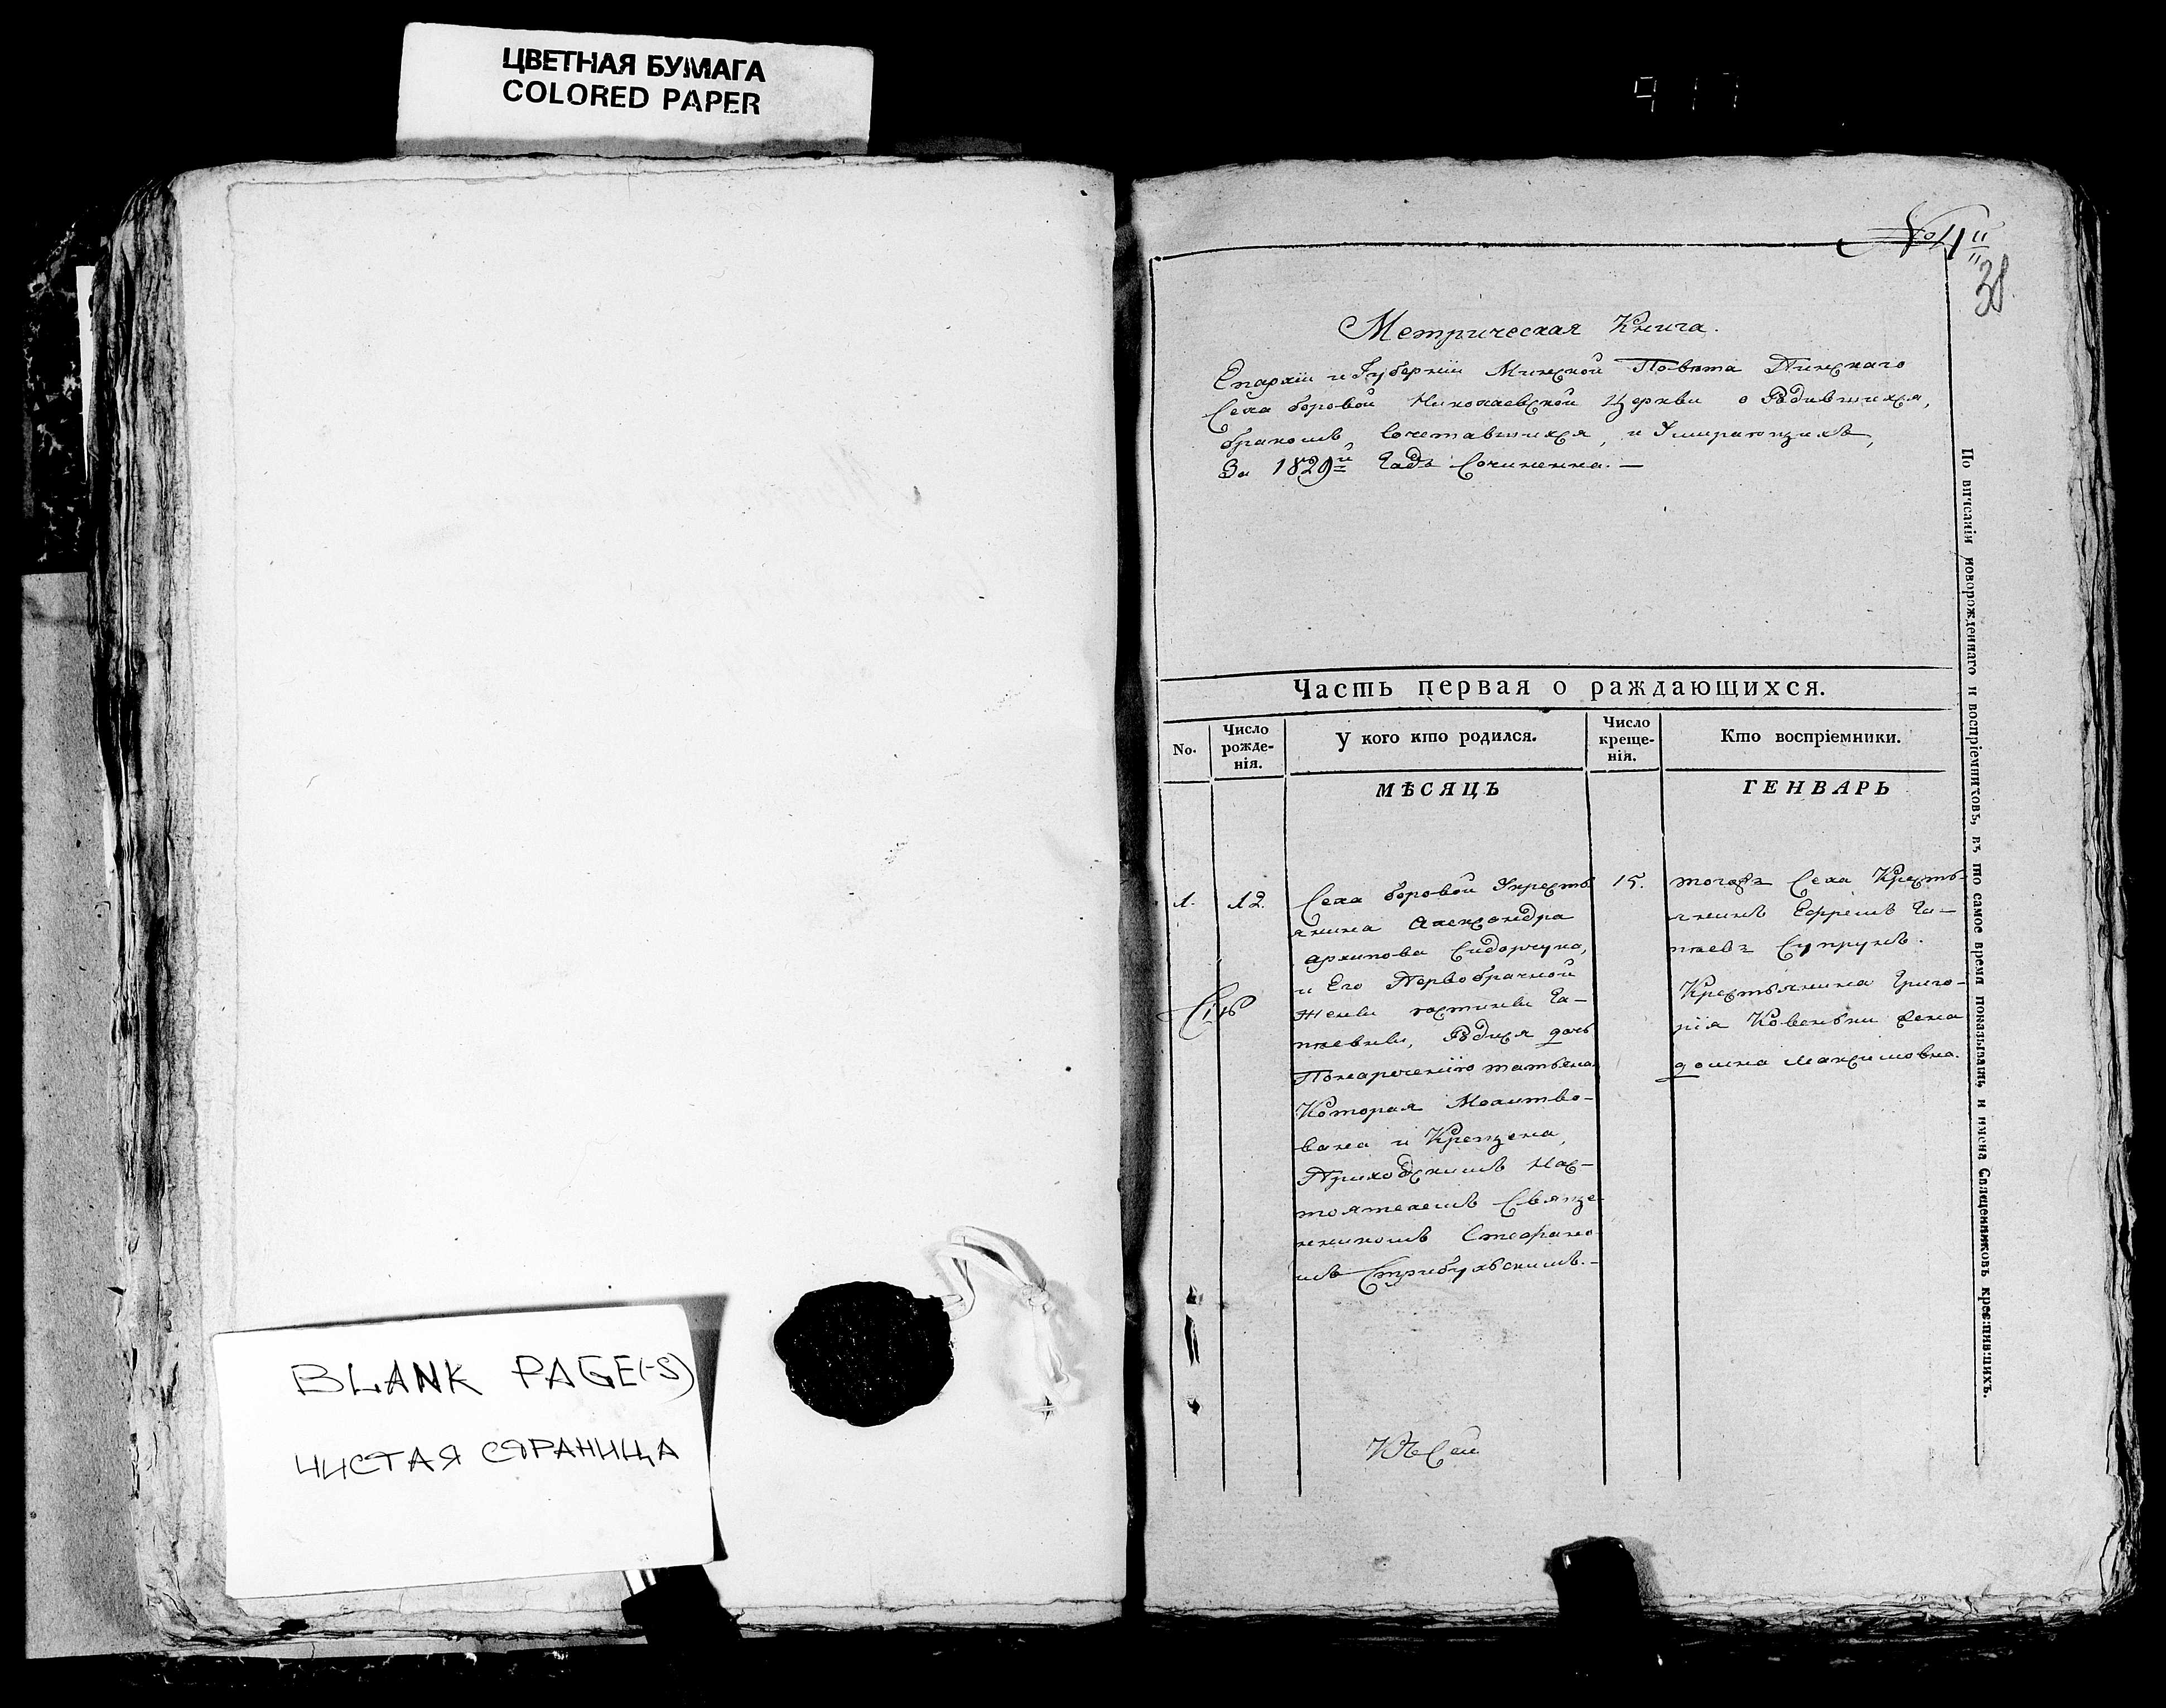 ЦВЕТНАЯ БУМАГА
COLORED PAPER
917
BLANK PAGE(-S)
ЧИСТАЯ СТРАНИЦА
38
Метрическая Книга.
Епархіи и Губерніи Минской Повѣта Пинскаго
Села боровой Николаевской Церкви о Родившихся,
бракомъ Сочетавшихся, и Умирающихъ,
За 1829й Годъ Сочиненна. —
Часть первая о раждающихся.
No.
Число рожде-
нія.
У кого кто родился.
Число креще-
нія.
Кто воспріемники.
МѢСЯЦЪ
ГЕНВАРЬ
1.
12.
Села боровой Кресть
янина Александра
архипова Сидорчука,
и Его Первобрачной
жены Га-
Родися дочь
Понареченію татьена
Которая Молитво-
вана и Крещена,
Приходскимъ Нас-
тоятелемъ Священ-
никомъ Стефано
мъ
15.
тогожъ Села Кресть-
янинъ Ефремъ Га-
Супрунъ.
Крестьянина Григо-
рія Ковеньки жена
домна Максимовна.
По вписаніи новорожденнаго и воспріемниковъ, въ то самое время показывать и имена Священниковъ крестившихъ.